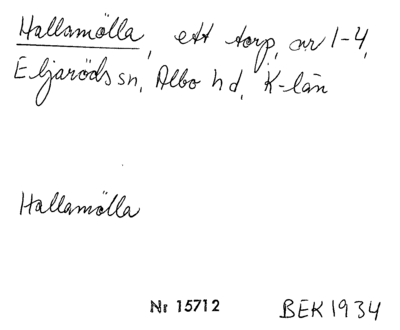 Hallamölla, ett torp, nr 1-4,
Eljaröds sn, Albo hd, K-län
Hallamölla
Nr 15712 BEK 1934